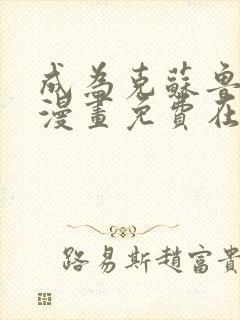 成為克蘇魯
漫畫免費在
路易斯趙富貴